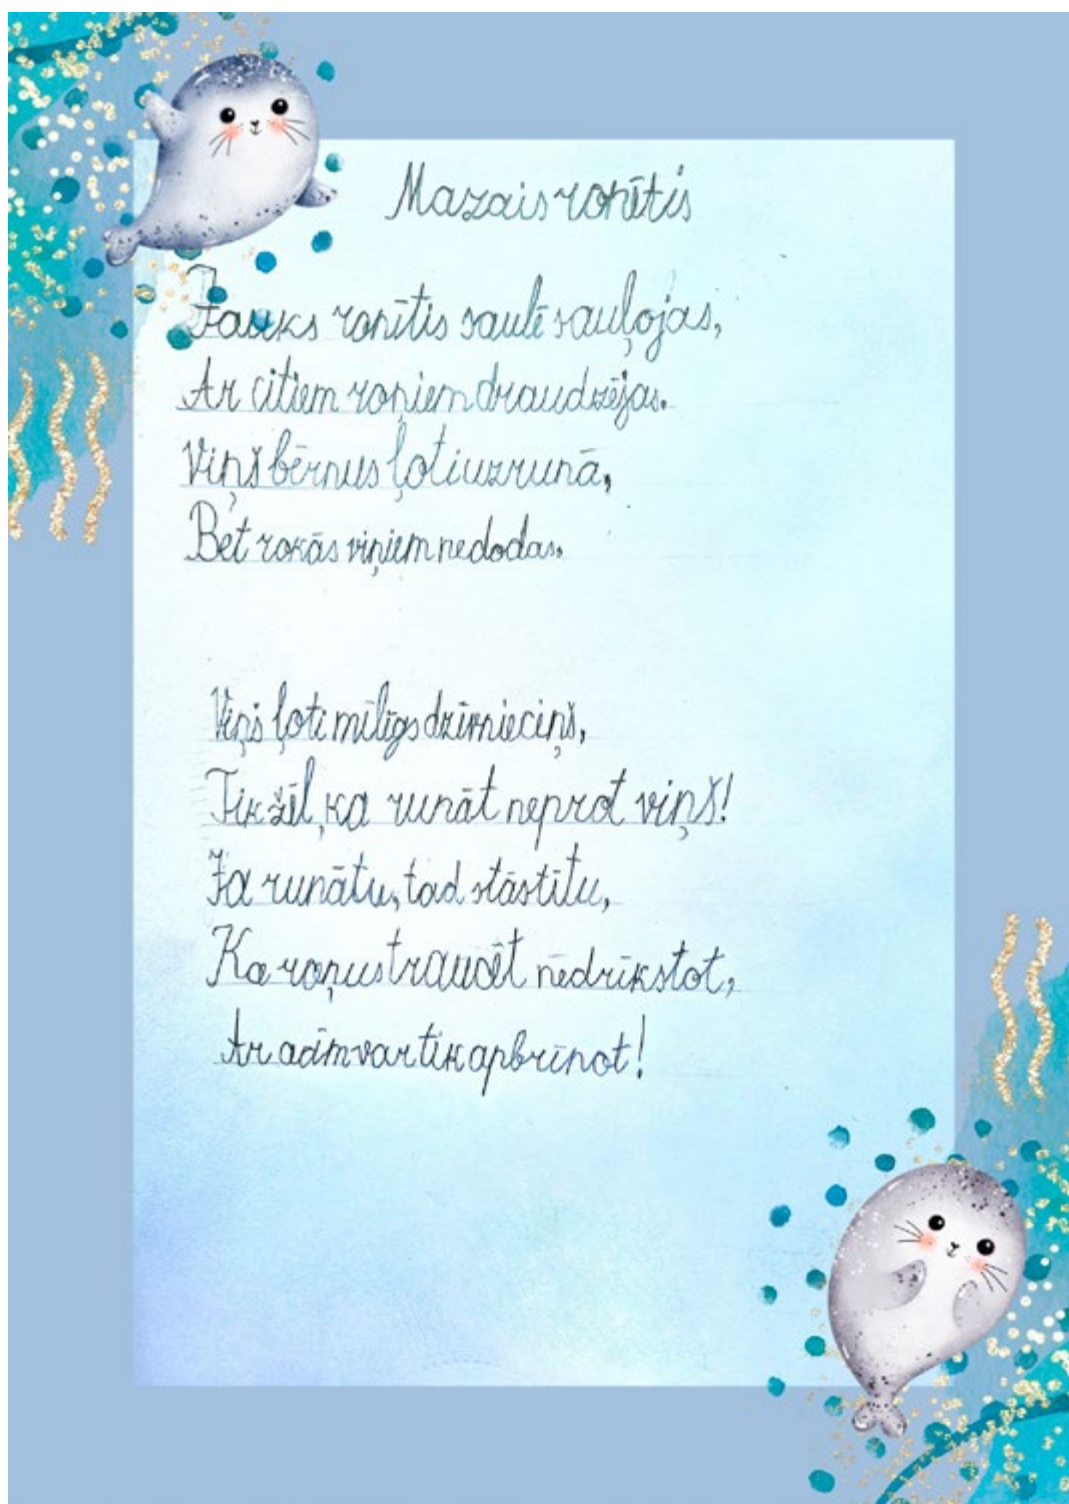 Mazais ronītis
Jauks ronītis saulē sauļojas,
Ar citiem roņiem draudzējas.
Viņš bērnus ļoti uzrunā,
Bet rokās viņiem nedodas.
Viņš ļoti mīlīgs dzīvnieciņš,
Tik žēl, ka runāt neprot viņš!
Ja runātu, tad stāstītu,
Ka roņus traucēt nedrīkstot,
Ar acīm var tik apbrīnot!